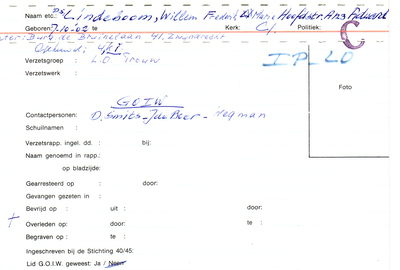 Naam etc.: Ds Lindeboom, Willem Frederik
Geboren: 7.10.02 te Kerk: Politiek:
41, Zwanenburg
Gehuwd:
C
Verzetsgroep : L.O Trouw
IP_LO
Verzetswerk :
Foto
G.O.I.W
Contactpersonen: D. Smits - J de Beer - Wegman
Schuilnamen :
Verzetsrapp. ingel. dd. : bij:
Naam genoemd in rapp.:
op bladzijde:
Gearresteerd op : door:
Gevangen gezeten in :
Bevrijd op : uit : door:
Overleden op: door: te :
Begraven op : te :
Ingeschreven bij de Stichting 40/45:
Lid G.O.I.W. geweest: Ja / Neen